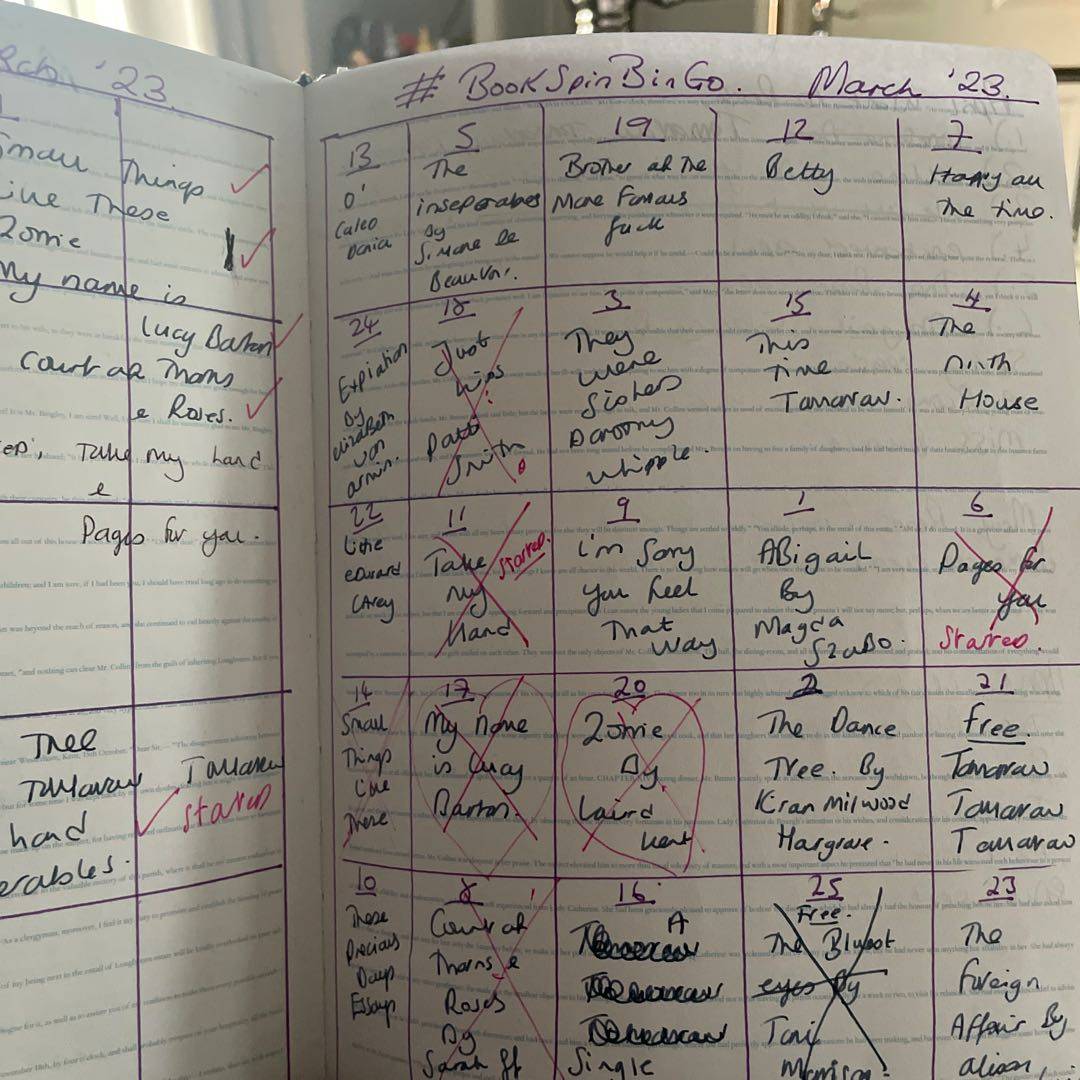 rch '23.
# BookSpinBinGo. March '23.
Small Things
Like These
Zomie
My name is
Lucy Barton
Court of Thorns
e Roses.
Take my hand
e
Pages for you.
Thee
Tomorrow Tomorrow
hand Starred
erables.
13
O'
Caleo
Donia
5
The
inseperables
By
Simone de
Beauvoir.
19
Brother of the
More Famous
Jack
12
Betty
7
Happy all
The time.
24
Expiation
By
Elizabeth
von
arnim.
18
Just
kids
Patti
Smith
3
They
were
Sisters
Dorothy
Whipple.
15
This
Time
Tomorrow.
4
The
ninth
House
22
Little
Edward
Carey
11
Take
my
Hand
Starred.
9
i'm Sorry
you feel
That
way
1
ABigail
By
Magda
Szabo.
6
Pages for
you
Starred.
14
Small
Things
Like
These
17
My name
is Lucy
Barton.
20
Zomie
By
Laird
Hunt
2
The Dance
Tree. By
Kiran Milwood
Hargrave.
21
free.
Tomorrow
Tomorrow
Tomorrow
10
These
Precious
Days
Essays
8
Court of
Thorns e
Roses
By
Sarah
16
A
Single
25
Free.
The Bluest
eyes By
Toni
Morrison.
23
The
Foreign
Affair By
alison